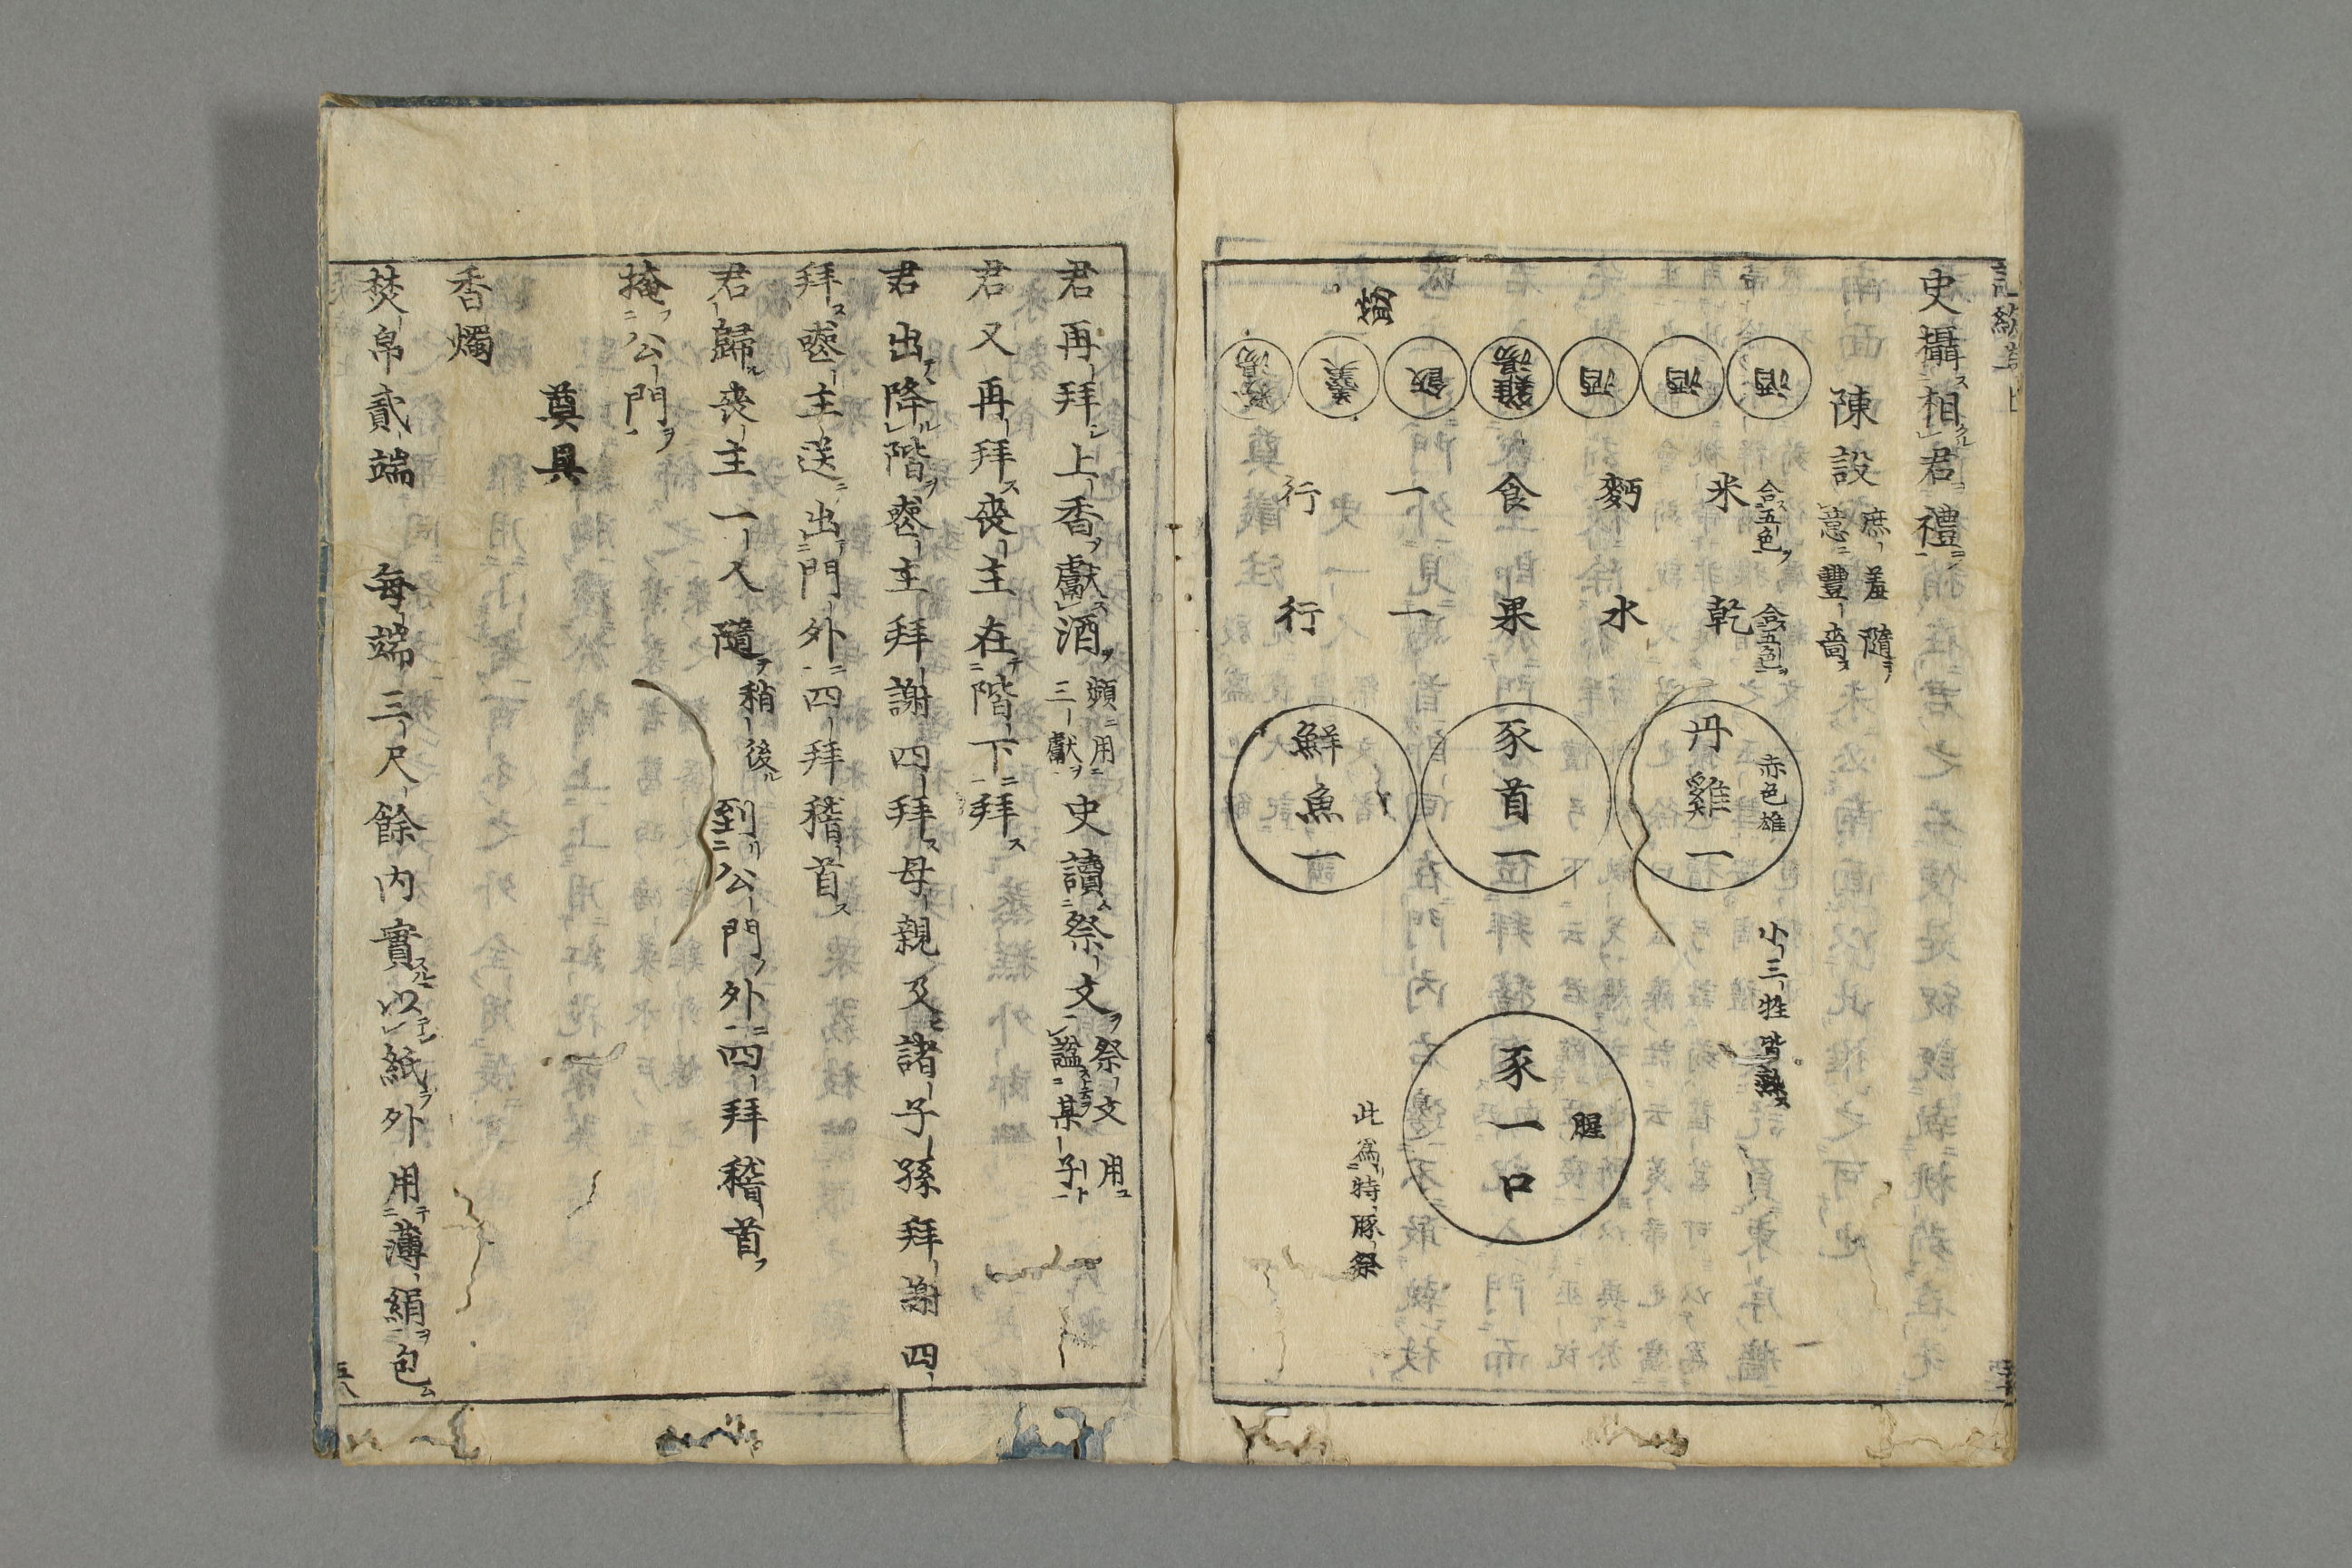 史攝相君禮
陳設
庶羞隨
意豐嗇
酒
酒
酒
雞湯
飯
羹
塩
米
合五色
麪
食
一
行
乾
合五色
水
果
一
行
丹雞一
赤色雄
豕首一
鮮魚一
小三牲皆熟
豕一口
腥
此為特豚祭
君再拜上香獻酒
頻用
三獻
史讀祭文
祭文用
謚某子
君又再拜喪主在階下拜
君出降階喪主拜謝四拜母親及諸子孫拜謝四
拜喪主送出門外四拜稽首
君歸喪主一人隨
稍後
到公門外四拜稽首
掩公門
奠具
香燭
焚帛貳端 每端三尺餘內實以紙外用薄絹包
五八